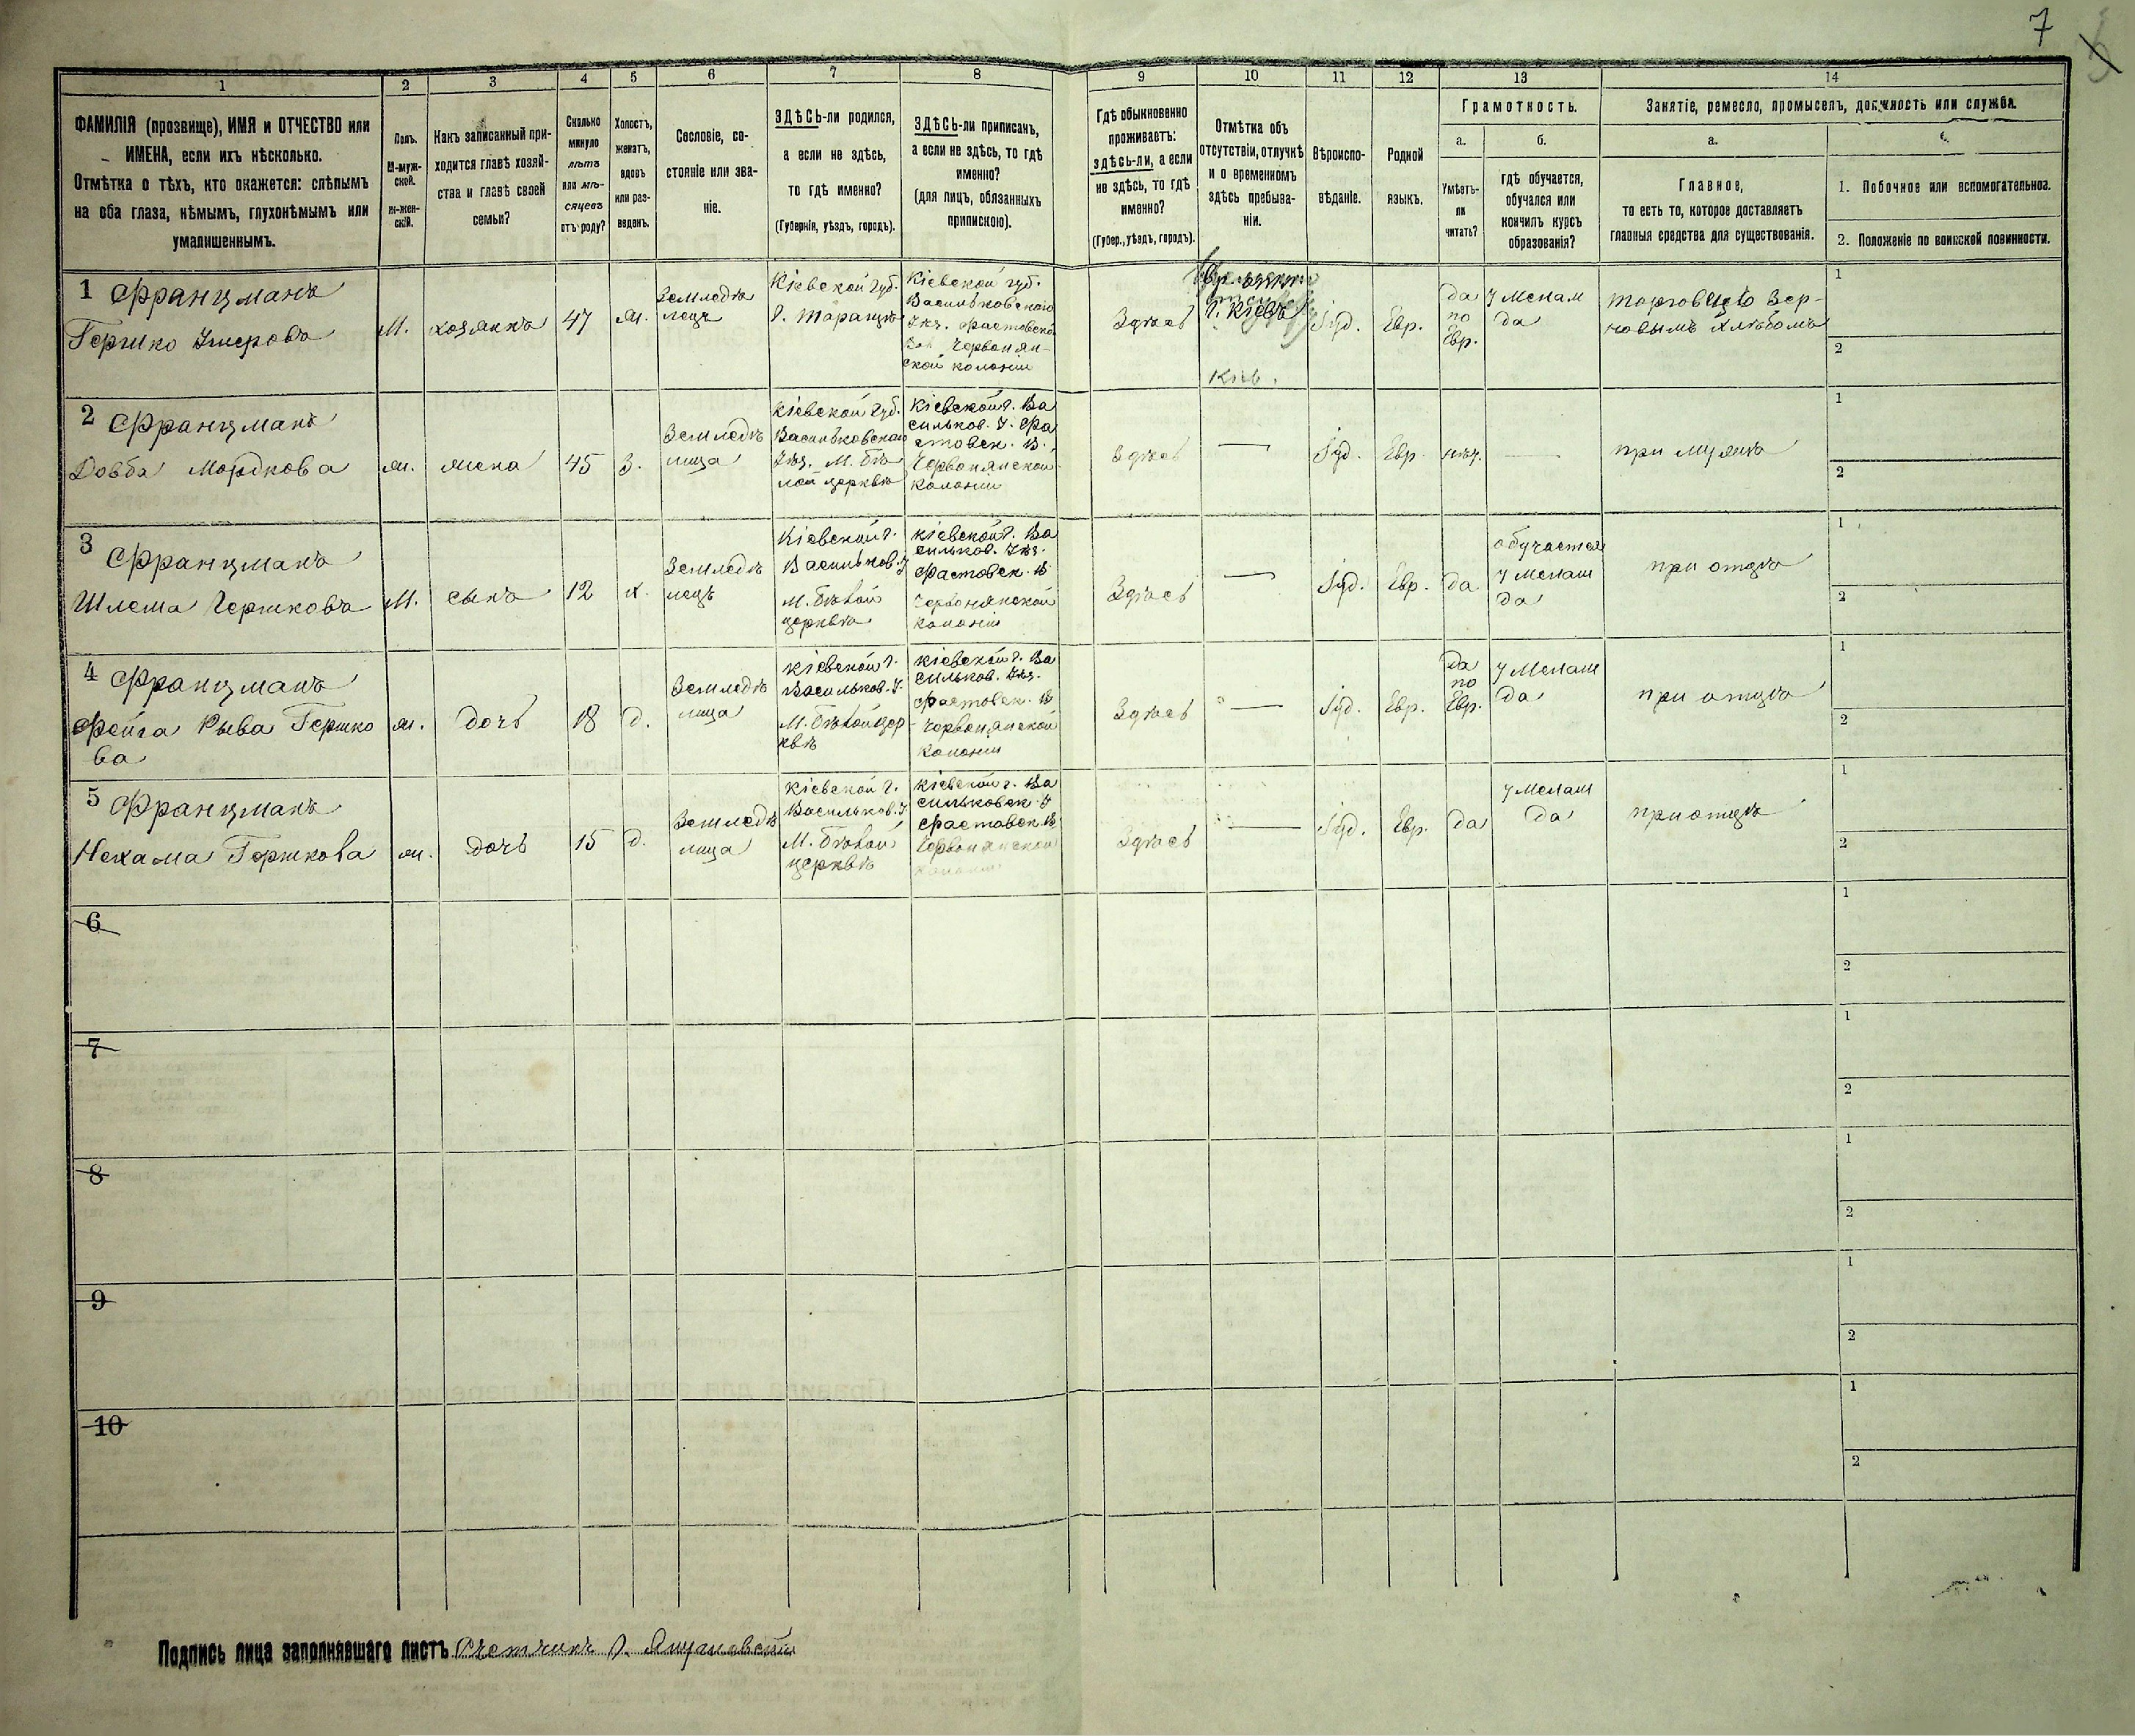 7
1 2 3 4 5 6 7 8 9 10 11 12 13 14
ФАМИЛІЯ (прозвище), ИМЯ и ОТЧЕСТВО или
ИМЕНА, если ихъ нѣсколько.
Отмѣтка о тѣхъ, кто окажется: слѣпымъ
на оба глаза, нѣмымъ, глухонѣмымъ или
умалишеннымъ.
Полъ.
М-муж-
ской.
Ж-жен-
скій.
Какъ записанный при-
ходится главѣ хозяй-
ства и главѣ своей
семьи?
Сколько
минуло
лѣтъ
или мѣ-
сяцевъ
отъ роду?
Холостъ,
женатъ,
вдовъ
или раз-
веденъ.
Сословіе, со-
стояніе или зва-
ніе.
ЗДѢСЬ-ли родился,
а если не здѣсь,
то гдѣ именно?
(Губернія, уѣздъ, городъ).
ЗДѢСЬ-ли приписанъ,
а если не здѣсь, то гдѣ
именно?
(для лицъ, обязанныхъ
припискою).
Гдѣ обыкновенно
проживаетъ:
здѣсь-ли, а если
не здѣсь, то гдѣ
именно?
(Губер., уѣздъ, городъ).
Отмѣтка объ
отсутствіи, отлучкѣ
и о временномъ
здѣсь пребыва-
ніи.
Вѣроиспо-
вѣданіе.
Родной
языкъ.
Грамотность.
а.
Умѣетъ-
ли
читать?
б.
гдѣ обучается,
обучался или
кончилъ курсъ
образованія?
Занятіе, ремесло, промыселъ, должность или служба.
а.
Главное,
то есть то, которое доставляетъ
главныя средства для существованія.
1. Побочное или вспомогательное.
2. Положеніе по воинской повинности.
1 Францманъ
Гершко Умеровъ
М.
хозяинъ
47
ж.
Земледѣ
лецъ
Кіевской губ.
г. Тараща
Кіевской губ.
Васильковскаго
Уѣз. Фастовской
Червонян-
ской колоніи
Здѣсь
г. Кіевъ
Іуд.
Евр.
да
по
Евр.
У Мелам
да
торговцего Зер-
новымъ хлѣбомъ
1
2
2 Францманъ
Довба Мордкова
ж.
жена
45
З.
Земледѣ
лица
Кіевской губ.
Васильковскаго
Уѣз. М. Бѣ
лой церквѣ
Кіевской г. Ва
сильков. У. Фа
стовск. В.
Червонянской
Колоніи
Здѣсь
—
Іуд.
Евр.
нѣт.
—
при мужѣ
1
2
3 Францманъ
Шлема Гершковъ
М.
сынъ
12
х.
Земледѣ
лецъ
Кіевской г.
Васильков. У
М. Бѣлой
церквѣ
Кіевской г. Ва
сильков. Уѣз.
Фастовск. В
Червонянской
Колоніи
Здѣсь
—
Іуд.
Евр.
да
обучается
У Мелам
да
при отцѣ
1
2
4 Францманъ
Фейга Рыва Гершко
ва
ж.
дочь
18
д.
Земледѣ
лица
Кіевской г.
Васильков. У.
М. Бѣлой цер
квѣ
Кіевской г. Ва
сильков. Уѣз.
Фастовск. В
Червонянской
Колоніи
Здѣсь
—
Іуд.
Евр.
да
по
Евр.
У Мелам
да
при отцѣ
1
2
5 Францманъ
Нехама Гершкова
ж.
дочь
15
д.
Земледѣ
лица
Кіевской г.
Васильков. У
М. Бѣлой
церквѣ
Кіевской г. Ва
сильковск. У
Фастовск. В
Червонянской
Колоніи
Здѣсь
—
Іуд.
Евр.
да
У Мелам
да
при отцѣ
1
2
6
1
2
7
1
2
8
1
2
9
1
2
10
1
2
Подпись лица заполнявшаго листъ Счетчикъ